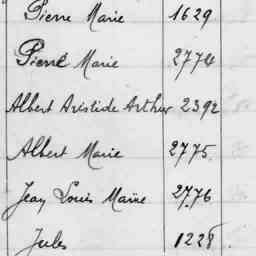 Pierre Marie 1629
Pierre Marie 2774
Albert Aristide Arthur 2392
Albert Marie 2775
Jean Louis Marie 2776
Jules 1228